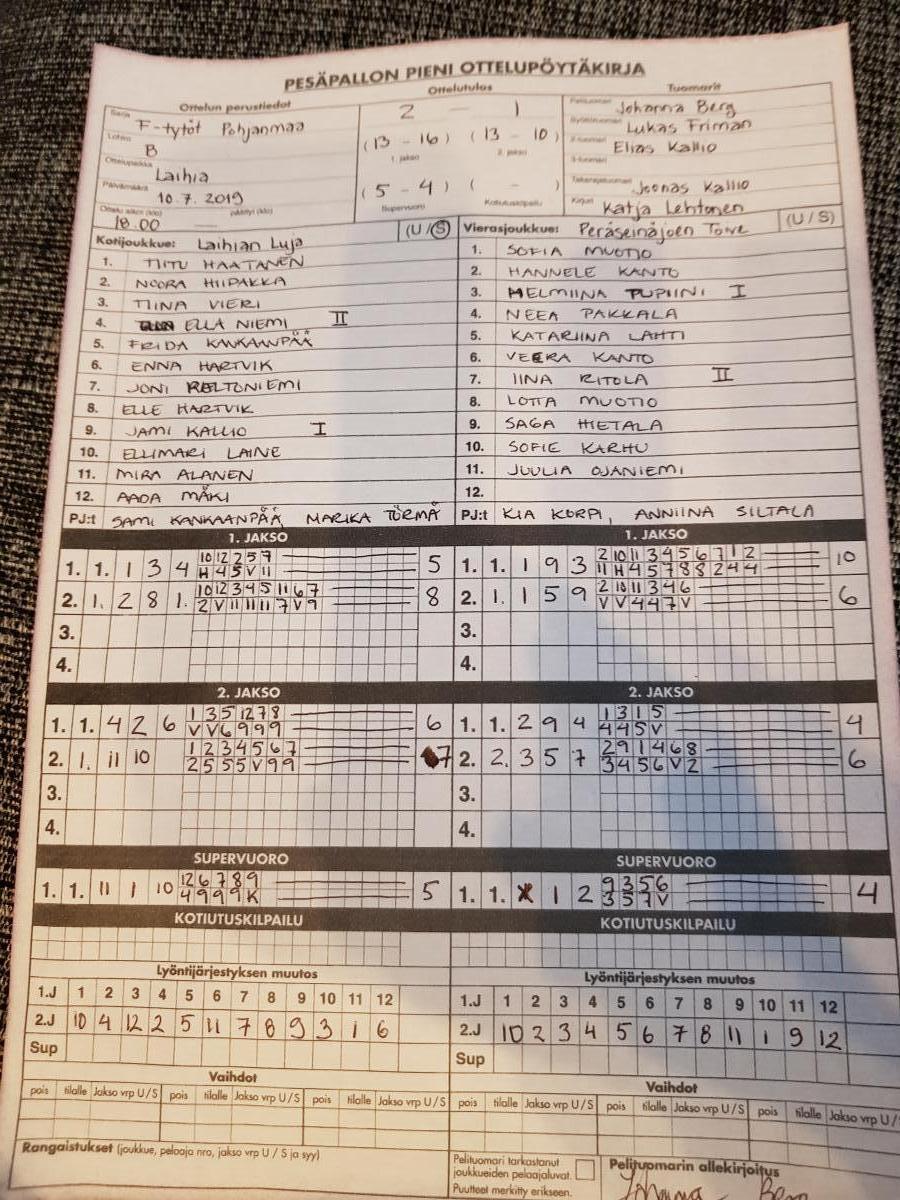 PESÄPALLON PIENI OTTELUPÖYTÄKIRJA
Ottelun perustiedot
Ottelutulos
Tuomarit
Sarja F-tytöt Pohjanmaa
Lohko B
Ottelupaikka Laihia
Päivämäärä 10.7.2019
Ottelu alkoi (klo) päättyi (klo)
18.00 —
2 — 1
(13 - 16) (13 - 10)
1. jakso 2. jakso
(5 - 4) ( - )
Supervuoro Kotiutuskilpailu
Pelituomari Johanna Berg
Syöttötuomari Lukas Friman
2-tuomari Elias Kallio
3-tuomari
Takarajatuomari Joonas Kallio
Kirjuri Katja Lehtonen
Kotijoukkue: Laihian Luja (U/S)
1. TIITU HAATANEN
2. NOORA HIIPAKKA
3. TIINA VIERI
4. ELLA NIEMI II
5. FRIDA KANKAANPÄÄ
6. ENNA HARTVIK
7. JONI
8. ELLE HARTVIK
9. JAMI KALLIO I
10. ELLIMARI LAINE
11. MIRA ALANEN
12. AADA MÄKI
PJ:t SAMI KANKAANPÄÄ, MARIKA TÖRMÄ
Vierasjoukkue: Peräseinäjoen Toive (U/S)
1. SOFIA MUOTIO
2. HANNELE KANTO
3. HELMIINA PUPIINI I
4. NEEA PAKKALA
5. KATARIINA LAHTI
6. VEERA KANTO
7. IINA RITOLA II
8. LOTTA MUOTIO
9. SAGA HIETALA
10. SOFIE KARHU
11. JUULIA OJANIEMI
12.
PJ:t KIA KORPI, ANNIINA SILTALA
1. JAKSO
1. 1. 1 3 4 10 12 2 5 7 5
H 4 5 V 11
2. 1. 2 8 1. 10 12 3 4 5 11 6 7 8
2 V 11 11 11 7 V 9
3.
4.
1. JAKSO
1. 1. 1 9 3 2 10 11 3 4 5 6 7 1 2 10
11 H 4 5 7 8 8 2 4 4
2. 1. 1 5 9 2 10 11 3 4 6 6
V V 4 4 7 V
3.
4.
2. JAKSO
1. 1. 4 2 6 1 3 5 12 7 8 6
V V 6 9 9 9
2. 1. 11 10 1 2 3 4 5 6 7 7
2 5 5 5 V 9 9
3.
4.
2. JAKSO
1. 1. 2 9 4 1 3 1 5 4
4 4 5 V
2. 2. 3 5 7 2 9 1 4 6 8 6
3 4 5 6 V 2
3.
4.
SUPERVUORO
1. 1. 11 1 10 12 6 7 8 9 5
4 9 9 9 K
SUPERVUORO
1. 1. 1 2 9 3 5 6 4
3 5 7 V
KOTIUTUSKILPAILU
KOTIUTUSKILPAILU
Lyöntijärjestyksen muutos
1.J 1 2 3 4 5 6 7 8 9 10 11 12
2.J 10 4 12 2 5 11 7 8 9 3 1 6
Sup
Lyöntijärjestyksen muutos
1.J 1 2 3 4 5 6 7 8 9 10 11 12
2.J 10 2 3 4 5 6 7 8 11 1 9 12
Sup
Vaihdot
pois tilalle Jakso vrp U/S pois tilalle Jakso vrp U/S pois tilalle Jakso vrp U/S
Vaihdot
pois tilalle Jakso vrp U/S pois tilalle Jakso vrp U/S pois tilalle Jakso vrp U/
Rangaistukset (joukkue, pelaaja nro, jakso vrp U / S ja syy)
Pelituomari tarkastanut
joukkueiden pelaajaluvat.
Puutteet merkitty erikseen.
Pelituomarin allekirjoitus
Johanna Berg